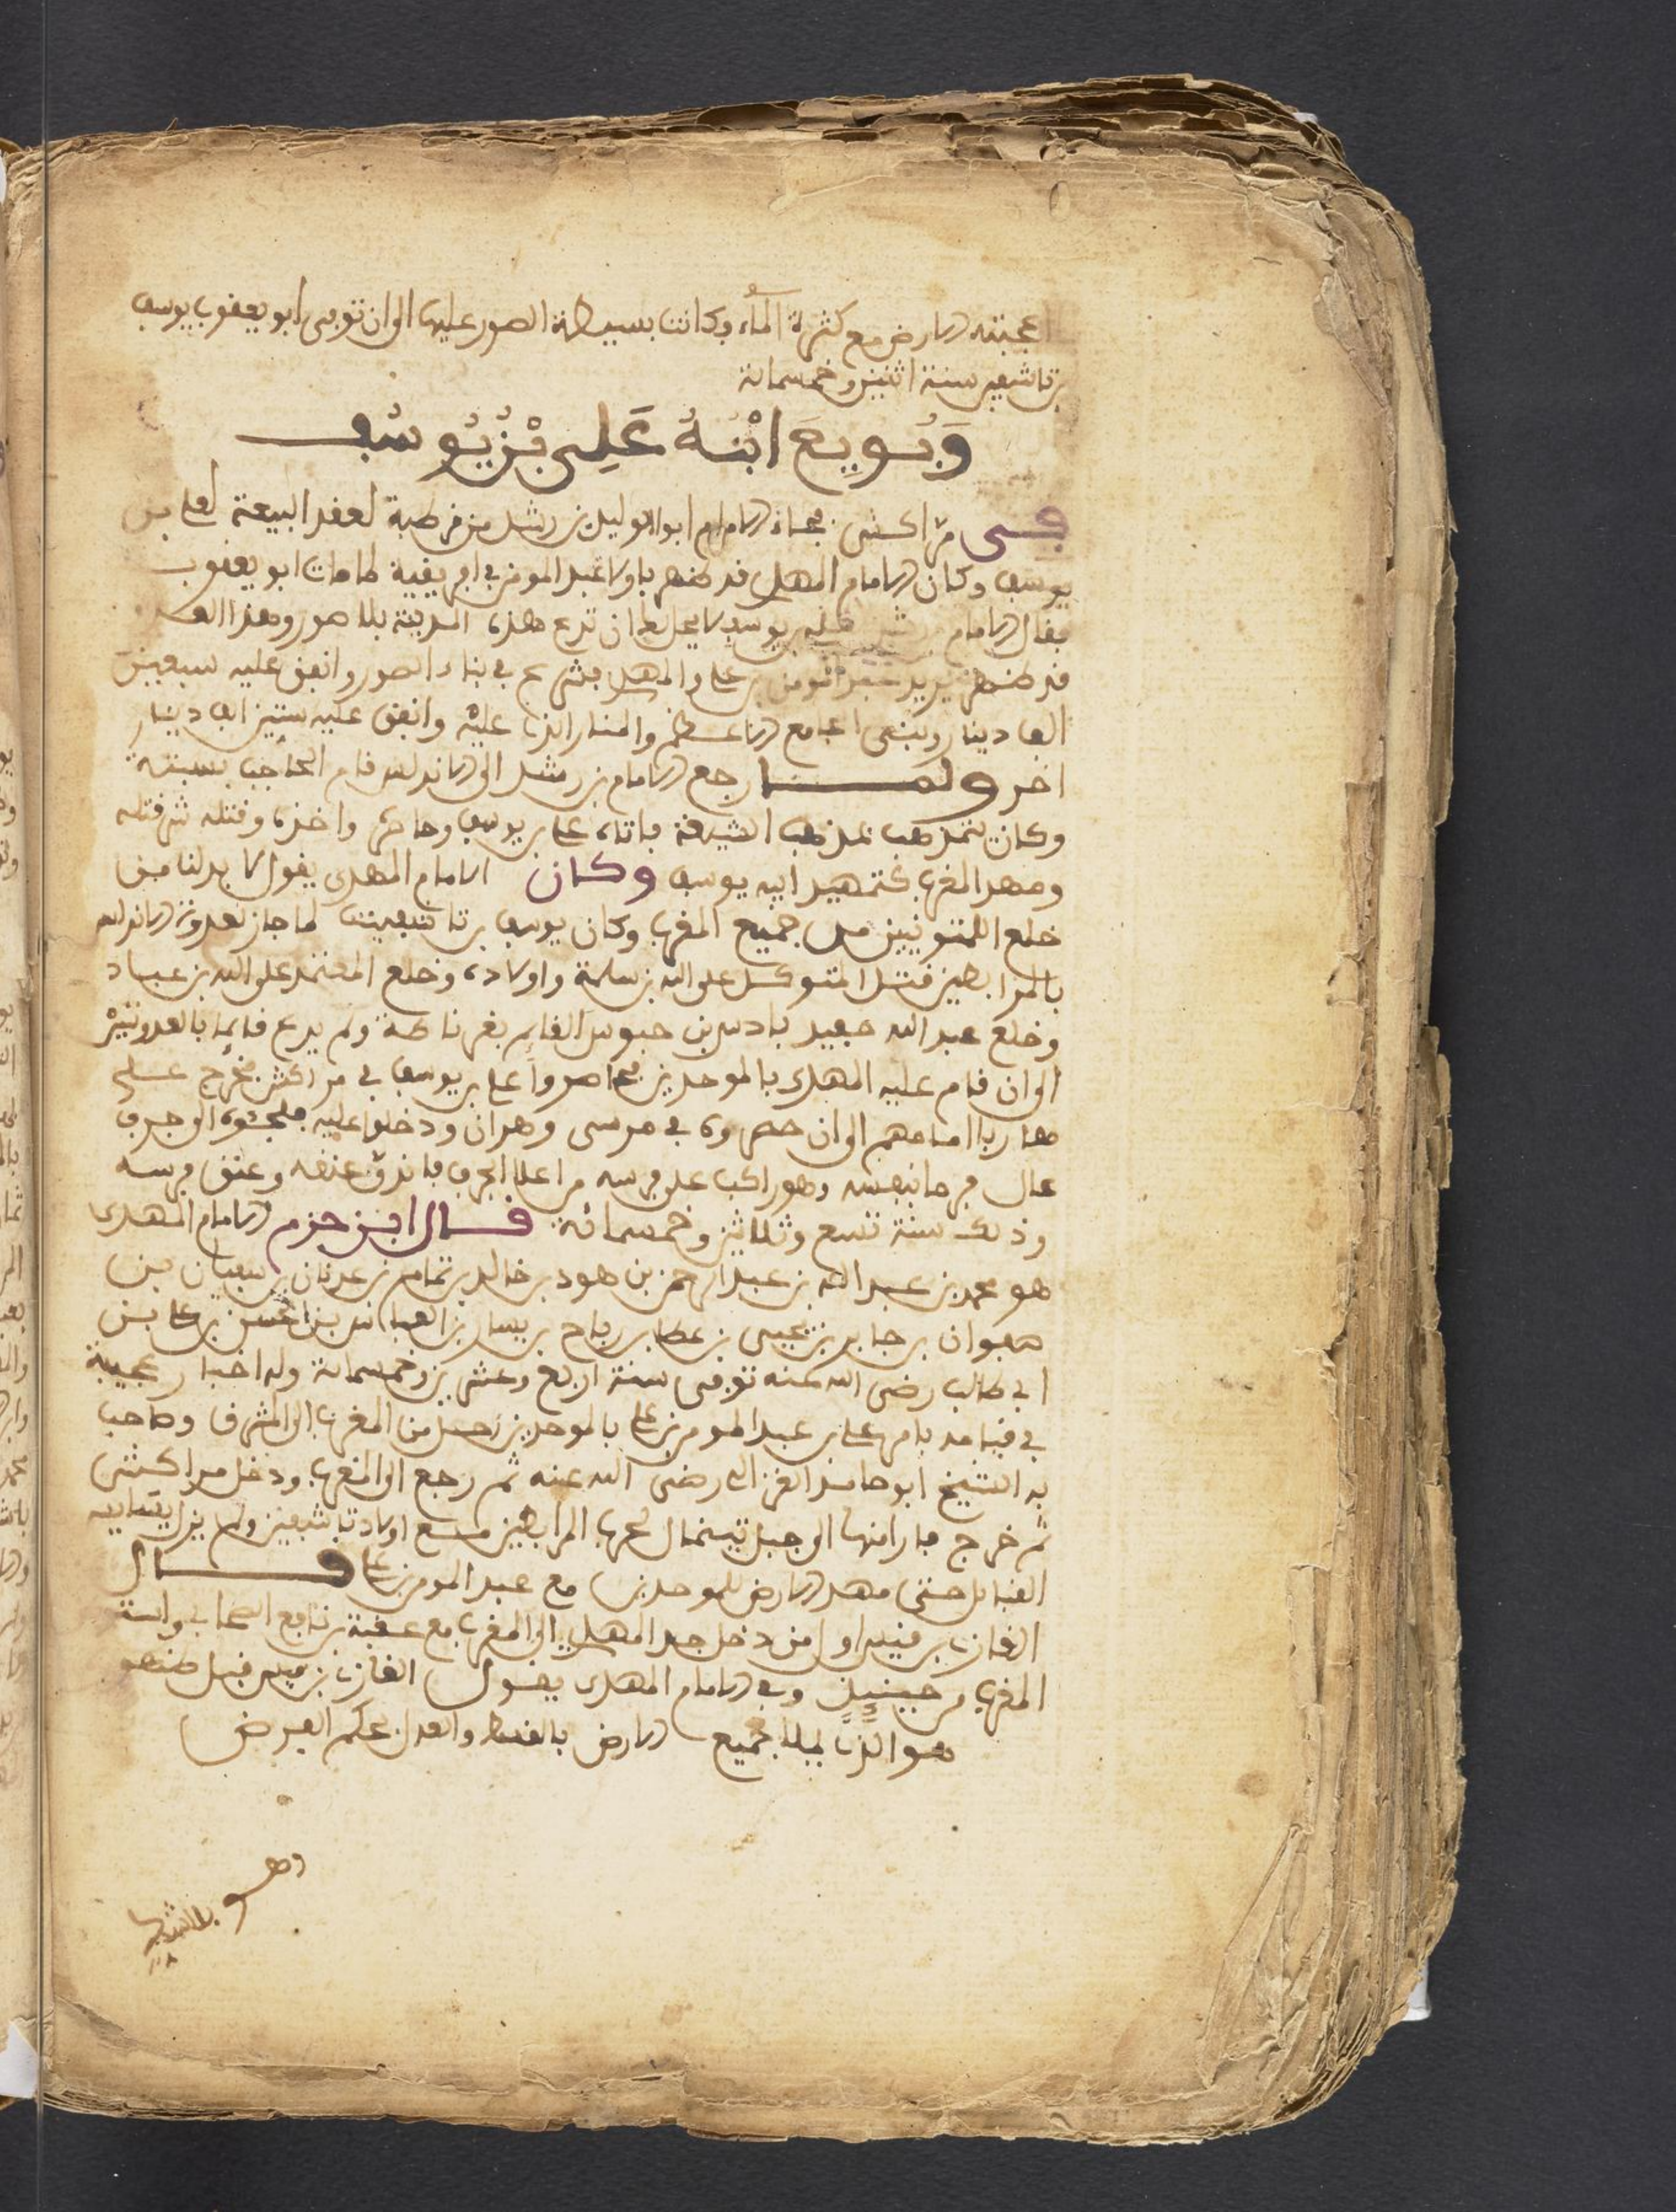 اعجبته الارض مع كثرة الماء وكانت بسيطة لاصور عليها الى ان توفى ابو يعقوب يوسف
بن تاشفين سنة اثنين وخمسمائة
وَبُويِعَ ابْنُهُ عَلِي بْنُ يُوسُف
فى مراكش فجاء الامام ابو الوليد بن رشد من قرطبة لعقد البيعة لعلي بن
يوسف وكان الامام المهدي قد ظهر باولاد عبد المومن في افريقية لما مات ابو يعقوب
فقال الامام بن رشد لعلي بن يوسف لا يحل لك ان تدع هذه المدينة بلا صور وهذا
قد ظهر يريد عبد المومن بن علي والمهدي فشرع في بناء الصور وانفق عليه سبعين
الف دينار وبنى الجامع الاعظم والمنار الذي عليه وانفق عليه ستين الف دينار
اخر ولما رجع الامام بن رشد الى الاندلس قام الحاجب بسبتة
وكان يتمذهب بمذهب الشيعة فاتاه علي بن يوسف وحاصره واخذه وقتله شر قتله
ومهد المغرب كتمهيد ابيه يوسف وكان الامام المهدي يقول لا بد لنا من
خلع اللمتونيين من جميع المغرب وكان يوسف بن تاشفين لما جاز لعدوة الاندلس
بالمرابطين قتل المتوكل على الله بن سلمة واولاده وخلع المعتمد على الله بن عباد
وخلع عبد الله حفيد باديس بن حبوس القايم بغرناطة ولم يدع قايما بالعدوتين
الى ان قام عليه المهدي بالموحدين فحاصروا علي بن يوسف في مراكش فخرج علي
هاربا امامهم الى ان حصروه في مرسى وهران ودخلوا عليه فلجئوه الى جرف
عال فرما بنفسه وهو راكب على فرسه من اعلا الجرف فاندق عنقه وعنق فرسه
وذلك سنة تسع وثلاثين وخمسمائة قال ابن حزم الامام المهدى
هو محمد بن عبد الله بن عبد الرحمن بن هود بن خالد بن تمام بن عدنان بن سفيان بن
صفوان بن جابر بن يحيى بن عطا بن رباح بن يسار بن العباس بن الحسن بن علي بن
ابي طالب رضى الله عنه توفى سنة اربع وعشرين وخمسمائة وله اخبار عجيبة
في قيامه بامر علي بن عبد المومن بن علي بالموحدين رحل من المغرب الى المشرق وصاحب
به الشيخ ابو حامد الغزالي رضى الله عنه ثم رجع الى المغرب ودخل مراكش
ثم خرج فارا منها الى جبل تينمال لحرب المرابطين مع اولاد تاشفين ولم يزل
القبايل حتى مهد الارض للموحدين مع عبد المومن بن علي قال
الغازي بن قيس اول من دخل جد المهدي الى المغرب مع عقبة بن نافع الصحابي
المغرب من حينئذ وفي الامام المهدى يقول الغازي بن قيس قبل ظهوره
هو الذي يملا جميع الارض بالقسط والعدل بحكم الفرض
وهو